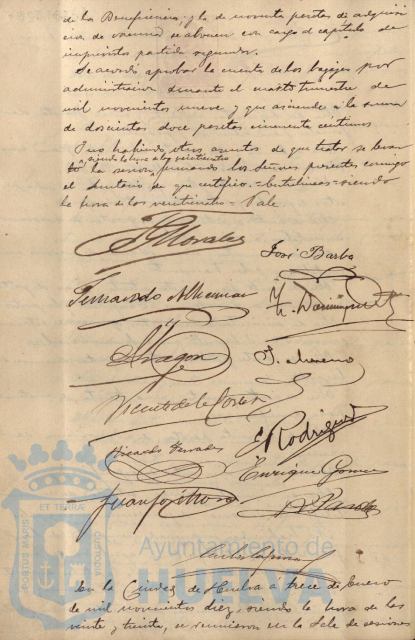 de la Beneficencia; y la de noventa pesetas de adquisi-
ción de vacuna se abonen con cargo al capítulo de
imprevistos partida segunda.
Se acordó aprobar la cuenta de los bagajes por
administración durante el cuarto trimestre de
mil novecientos nueve y que asciende a la suma
de doscientas doce pesetas cincuenta céntimos
Y no habiendo otros asuntos de que tratar se levan-
siendo la hora de las veintitrés
tó la sesión, firmando los señores presentes conmigo
el Secretario de que certifico. = Entrelíneas = siendo
la hora de las veintitrés = Vale
Morales
José Barba
Fernando
Aragón
J. Moreno
Vicente de la Corte
E. Rodríguez
Ricardo Terrades
Enrique Gómez
Juan José
PORTUS MARIS
ET TERRÆ
CUSTODIA
Ayuntamiento de
HUELVA
En la Ciudad de Huelva a trece de Enero
de mil novecientos diez, siendo la hora de las
veinte y treinta, se reunieron en la Sala de sesiones